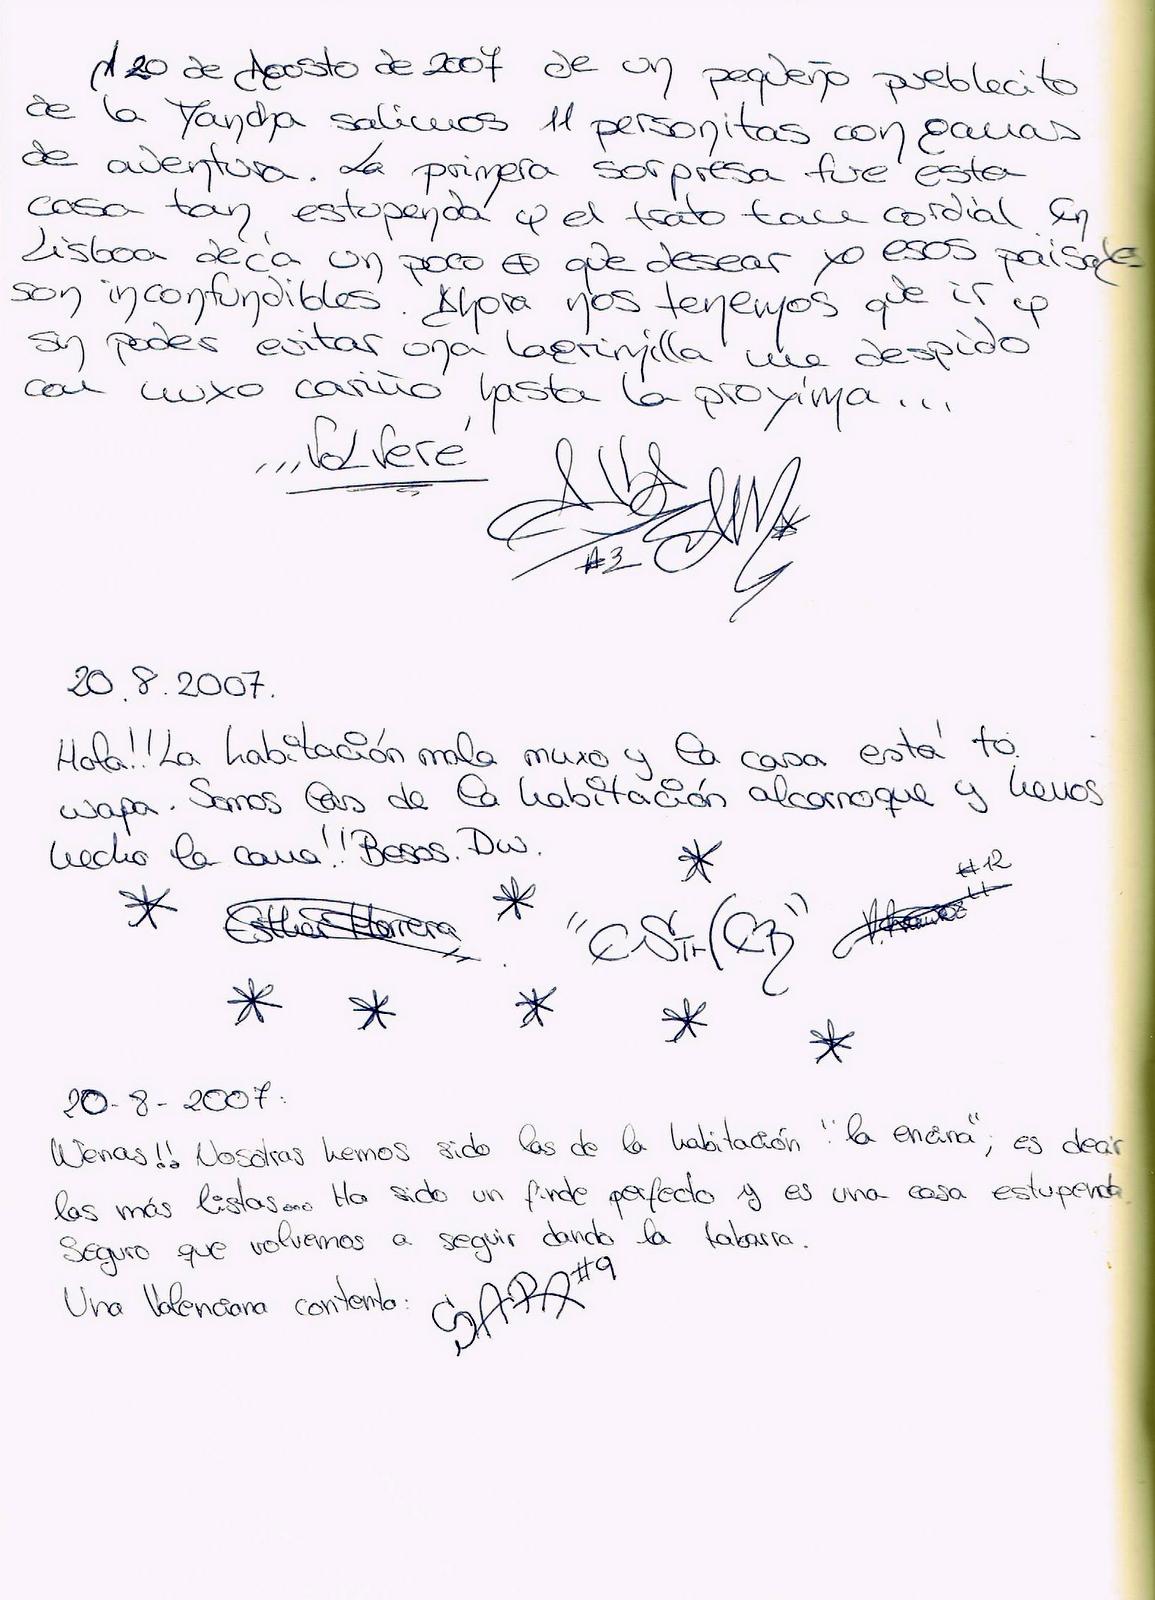 A 20 de Agosto de 2007 de un pequeño pueblecito
de la Mancha salimos 11 personitas con ganas
de aventura. La primera sorpresa fue esta
casa tan estupenda y el trato tan cordial. En
Lisboa deja un poco + que desear yo esos paisajes
son inconfundibles. Ahora nos tenemos que ir y
sin poder evitar una lagrimilla me despido
con muxo cariño hasta la proxima...
...Volveré
#3
20.8.2007.
Hola!! La habitación mola muxo y la casa está to
wapa. Somos las de la habitación alcornoque y hemos
hecho la cama!! Besos. Dw.
Esther Herrera
#12
20-8-2007:
Wenas!! Nosotras hemos sido las de la habitación "la encina", es decir
las más listas... Ha sido un finde perfecto y es una casa estupenda.
Seguro que volvemos a seguir dando la tabarra.
Una Valenciana contenta: SARA #9